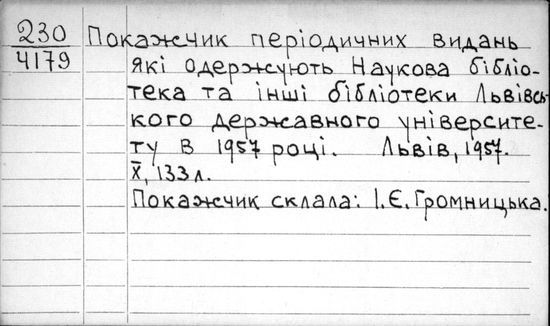 230
4179
Покажчик періодичних видань
які одержують Наукова бібліо-
тека та інші бібліотеки Львівсь-
кого державного університе-
ту в 1957 році. Львів, 1957.
X, 133 л.
Покажчик склала: І.Є. Громницька.